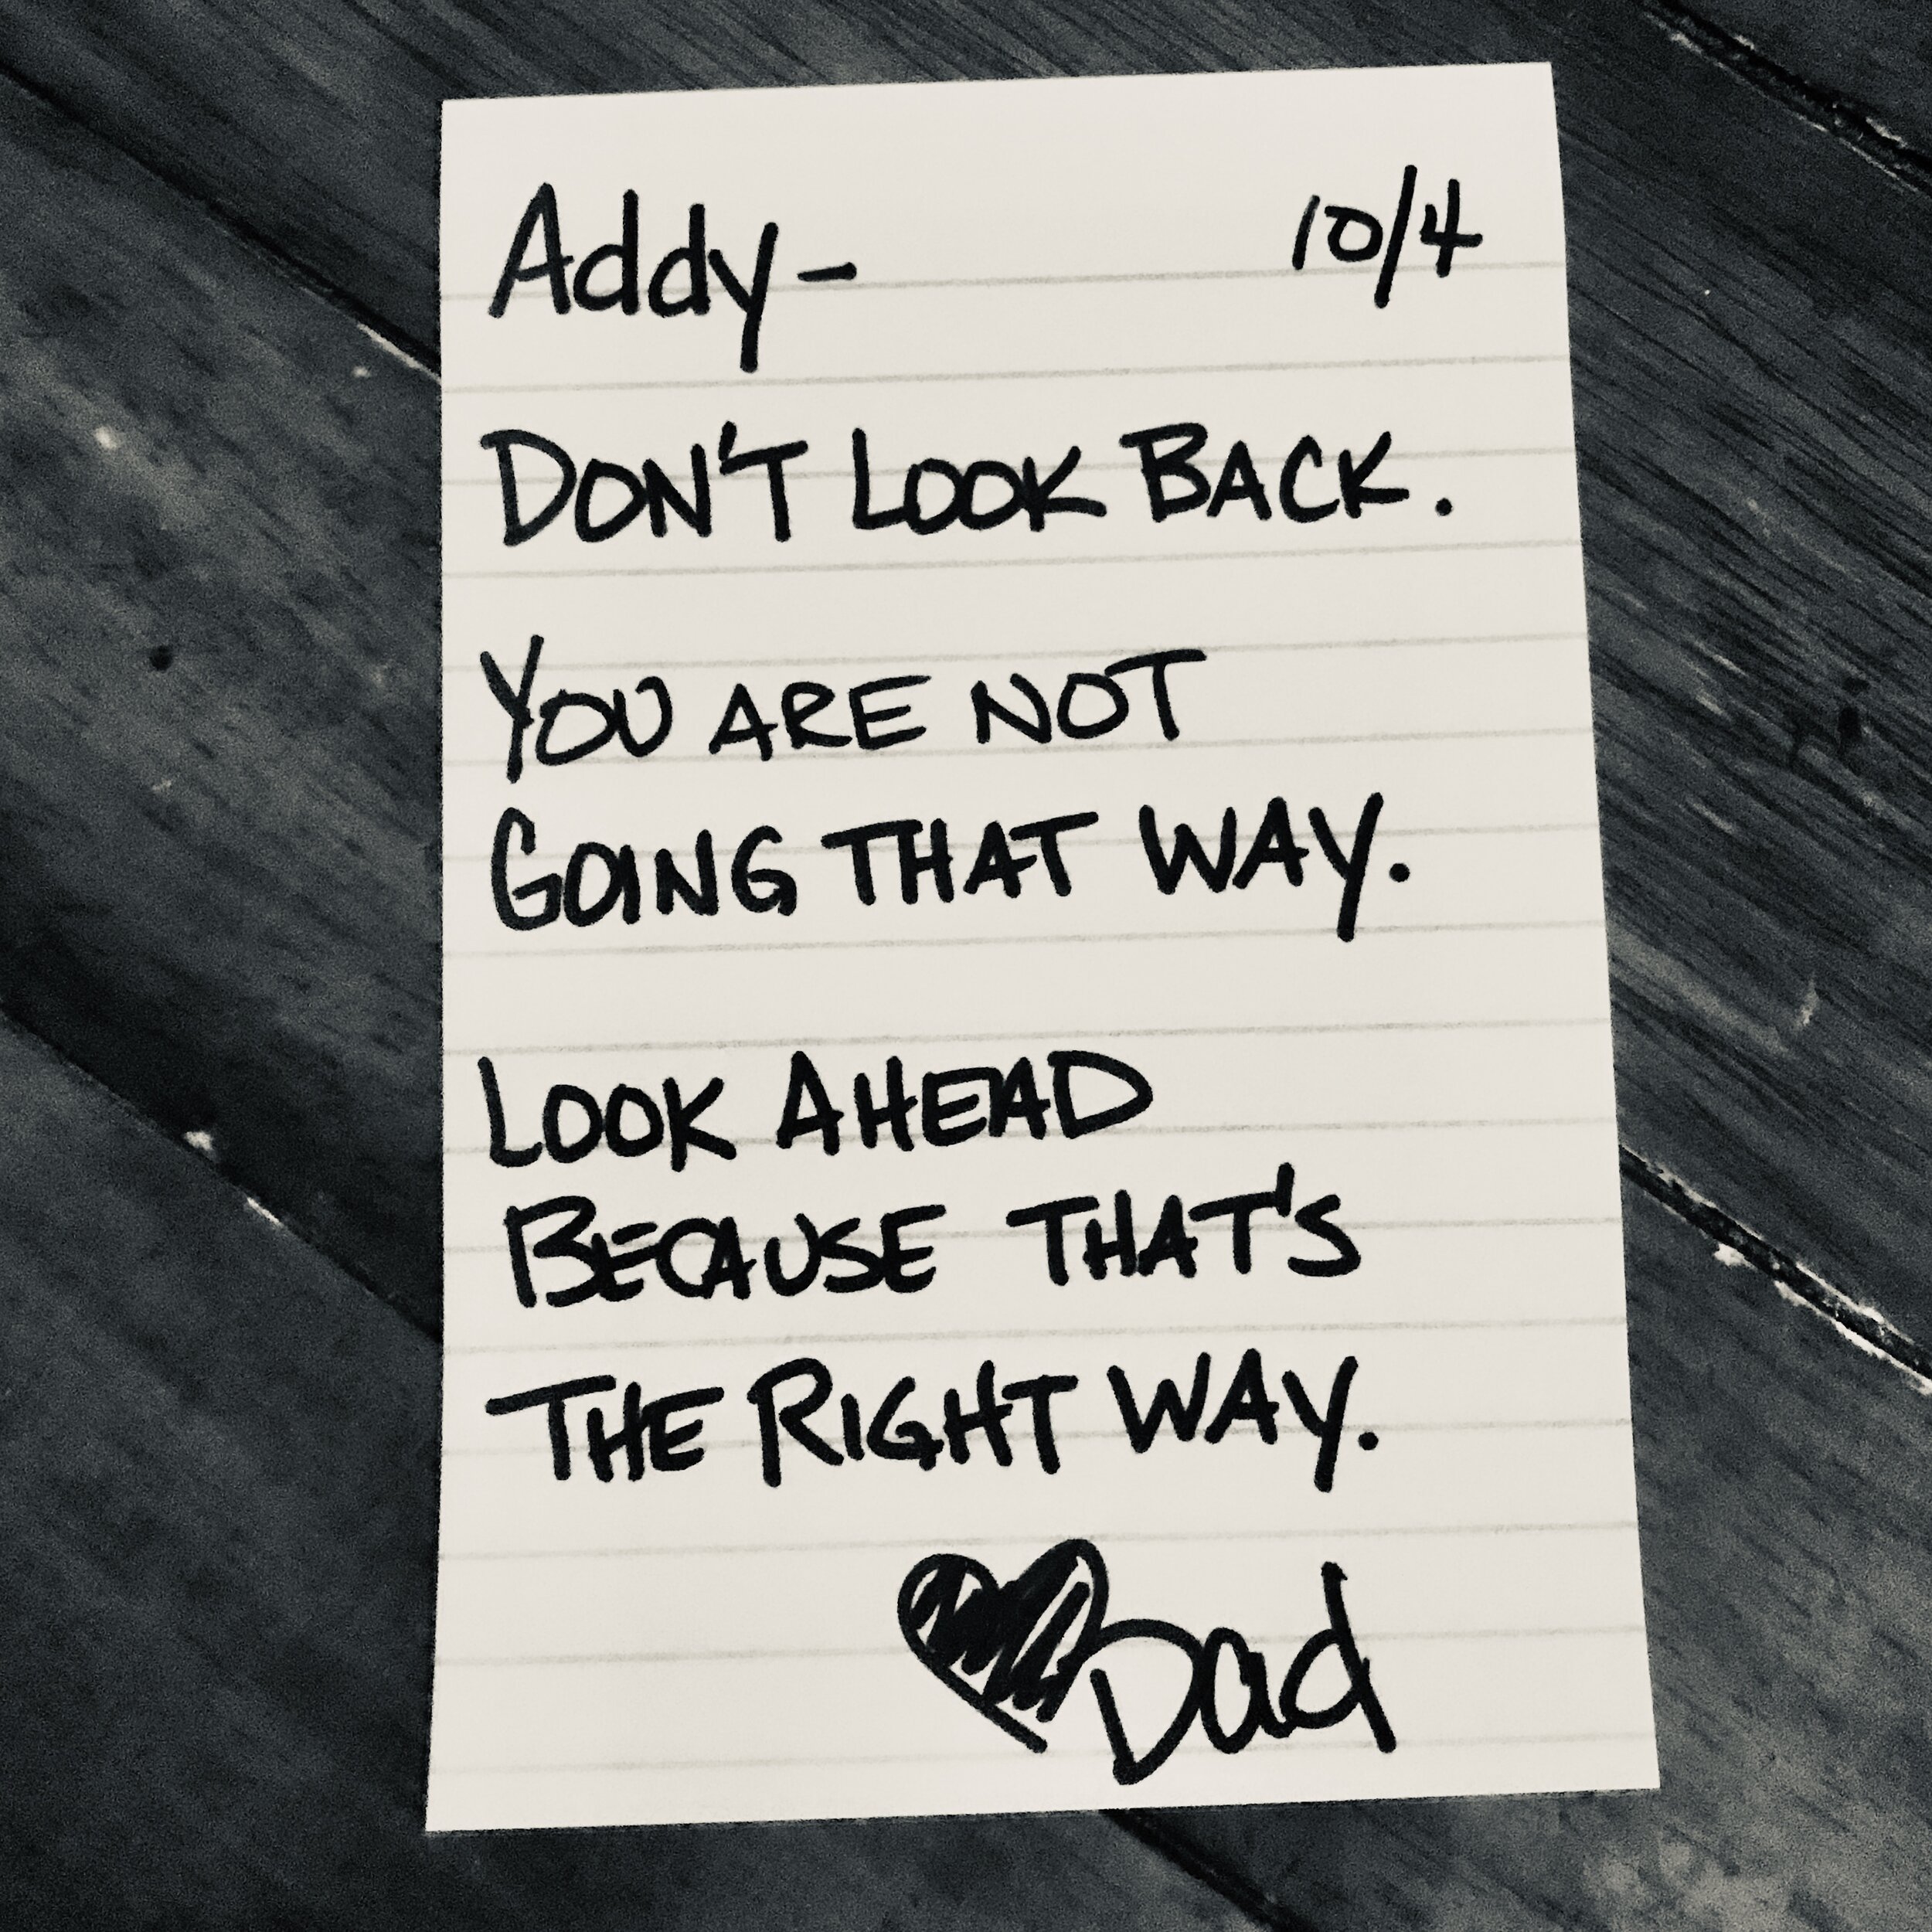 Addy- 10/4
DON'T LOOK BACK.
YOU ARE NOT
GOING THAT WAY.
LOOK AHEAD
BECAUSE THAT'S
THE RIGHT WAY.
Dad